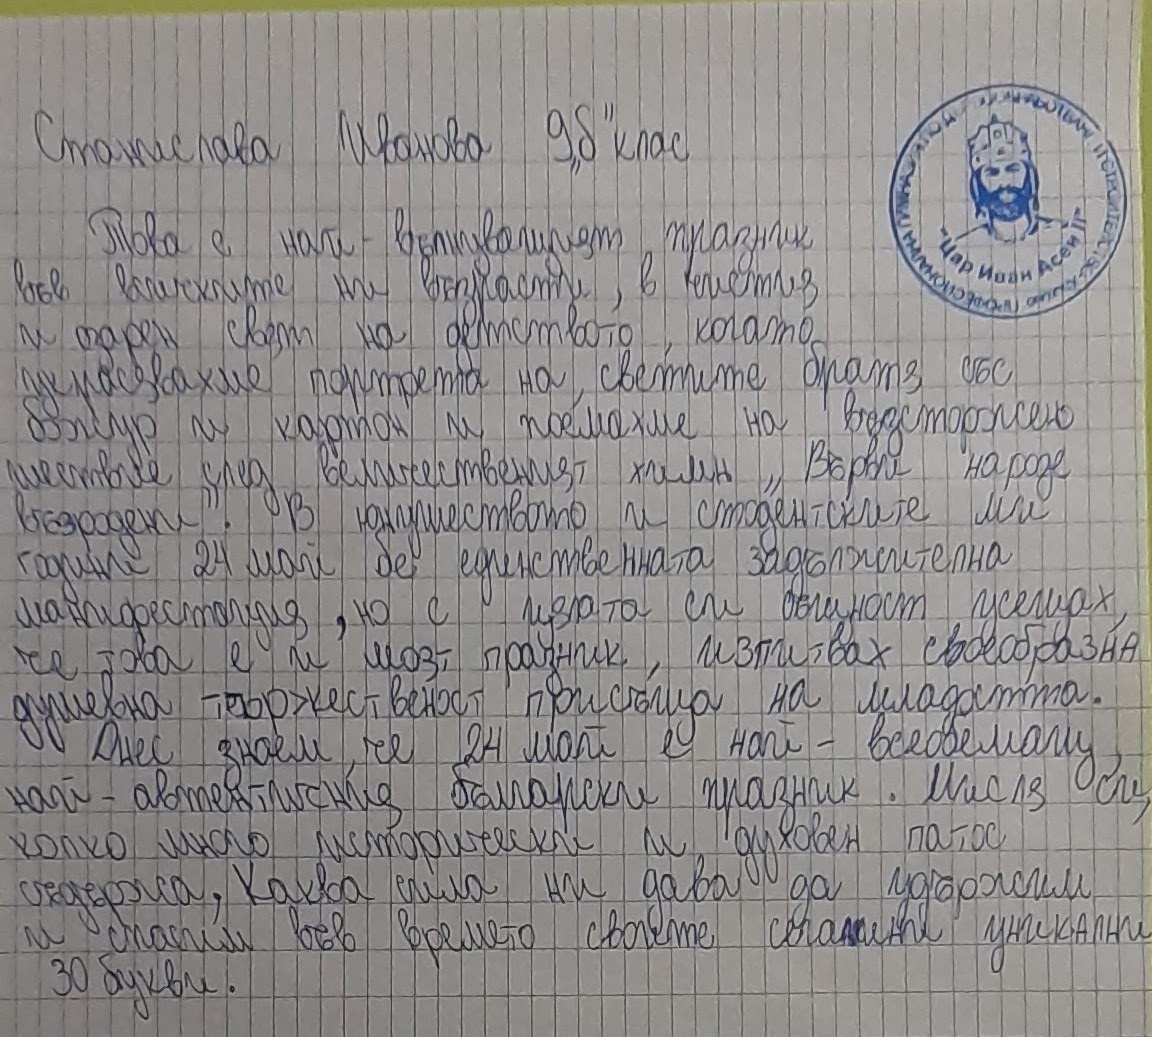 Станислава Иванова 9„б" клас
Това е най-вълнуващият празник
във всичките ни възрасти, в чистия
и озарен свят на детството, когато
украсявахме портрета на светите братя със
божур и картон и поемахме на възторжено
шествие след величественият химн „Върви народе
възродени". В юношеството и студентските ми
години 24 май бе единствената задължителна
манифестация, но с цялата си същност усещах,
че това е и моят празник, изпитвах своеобразна
душевна тържественост присъща на младостта.
Днес знаем, че 24 май е най-всеобемащ,
най-автентичния български празник. Мисля си,
колко много исторически и духовен патос
съдържа, каква сила ни дава да удържим
и спасим във времето своите уникални
30 букви.
"Цар Иван Асен II"